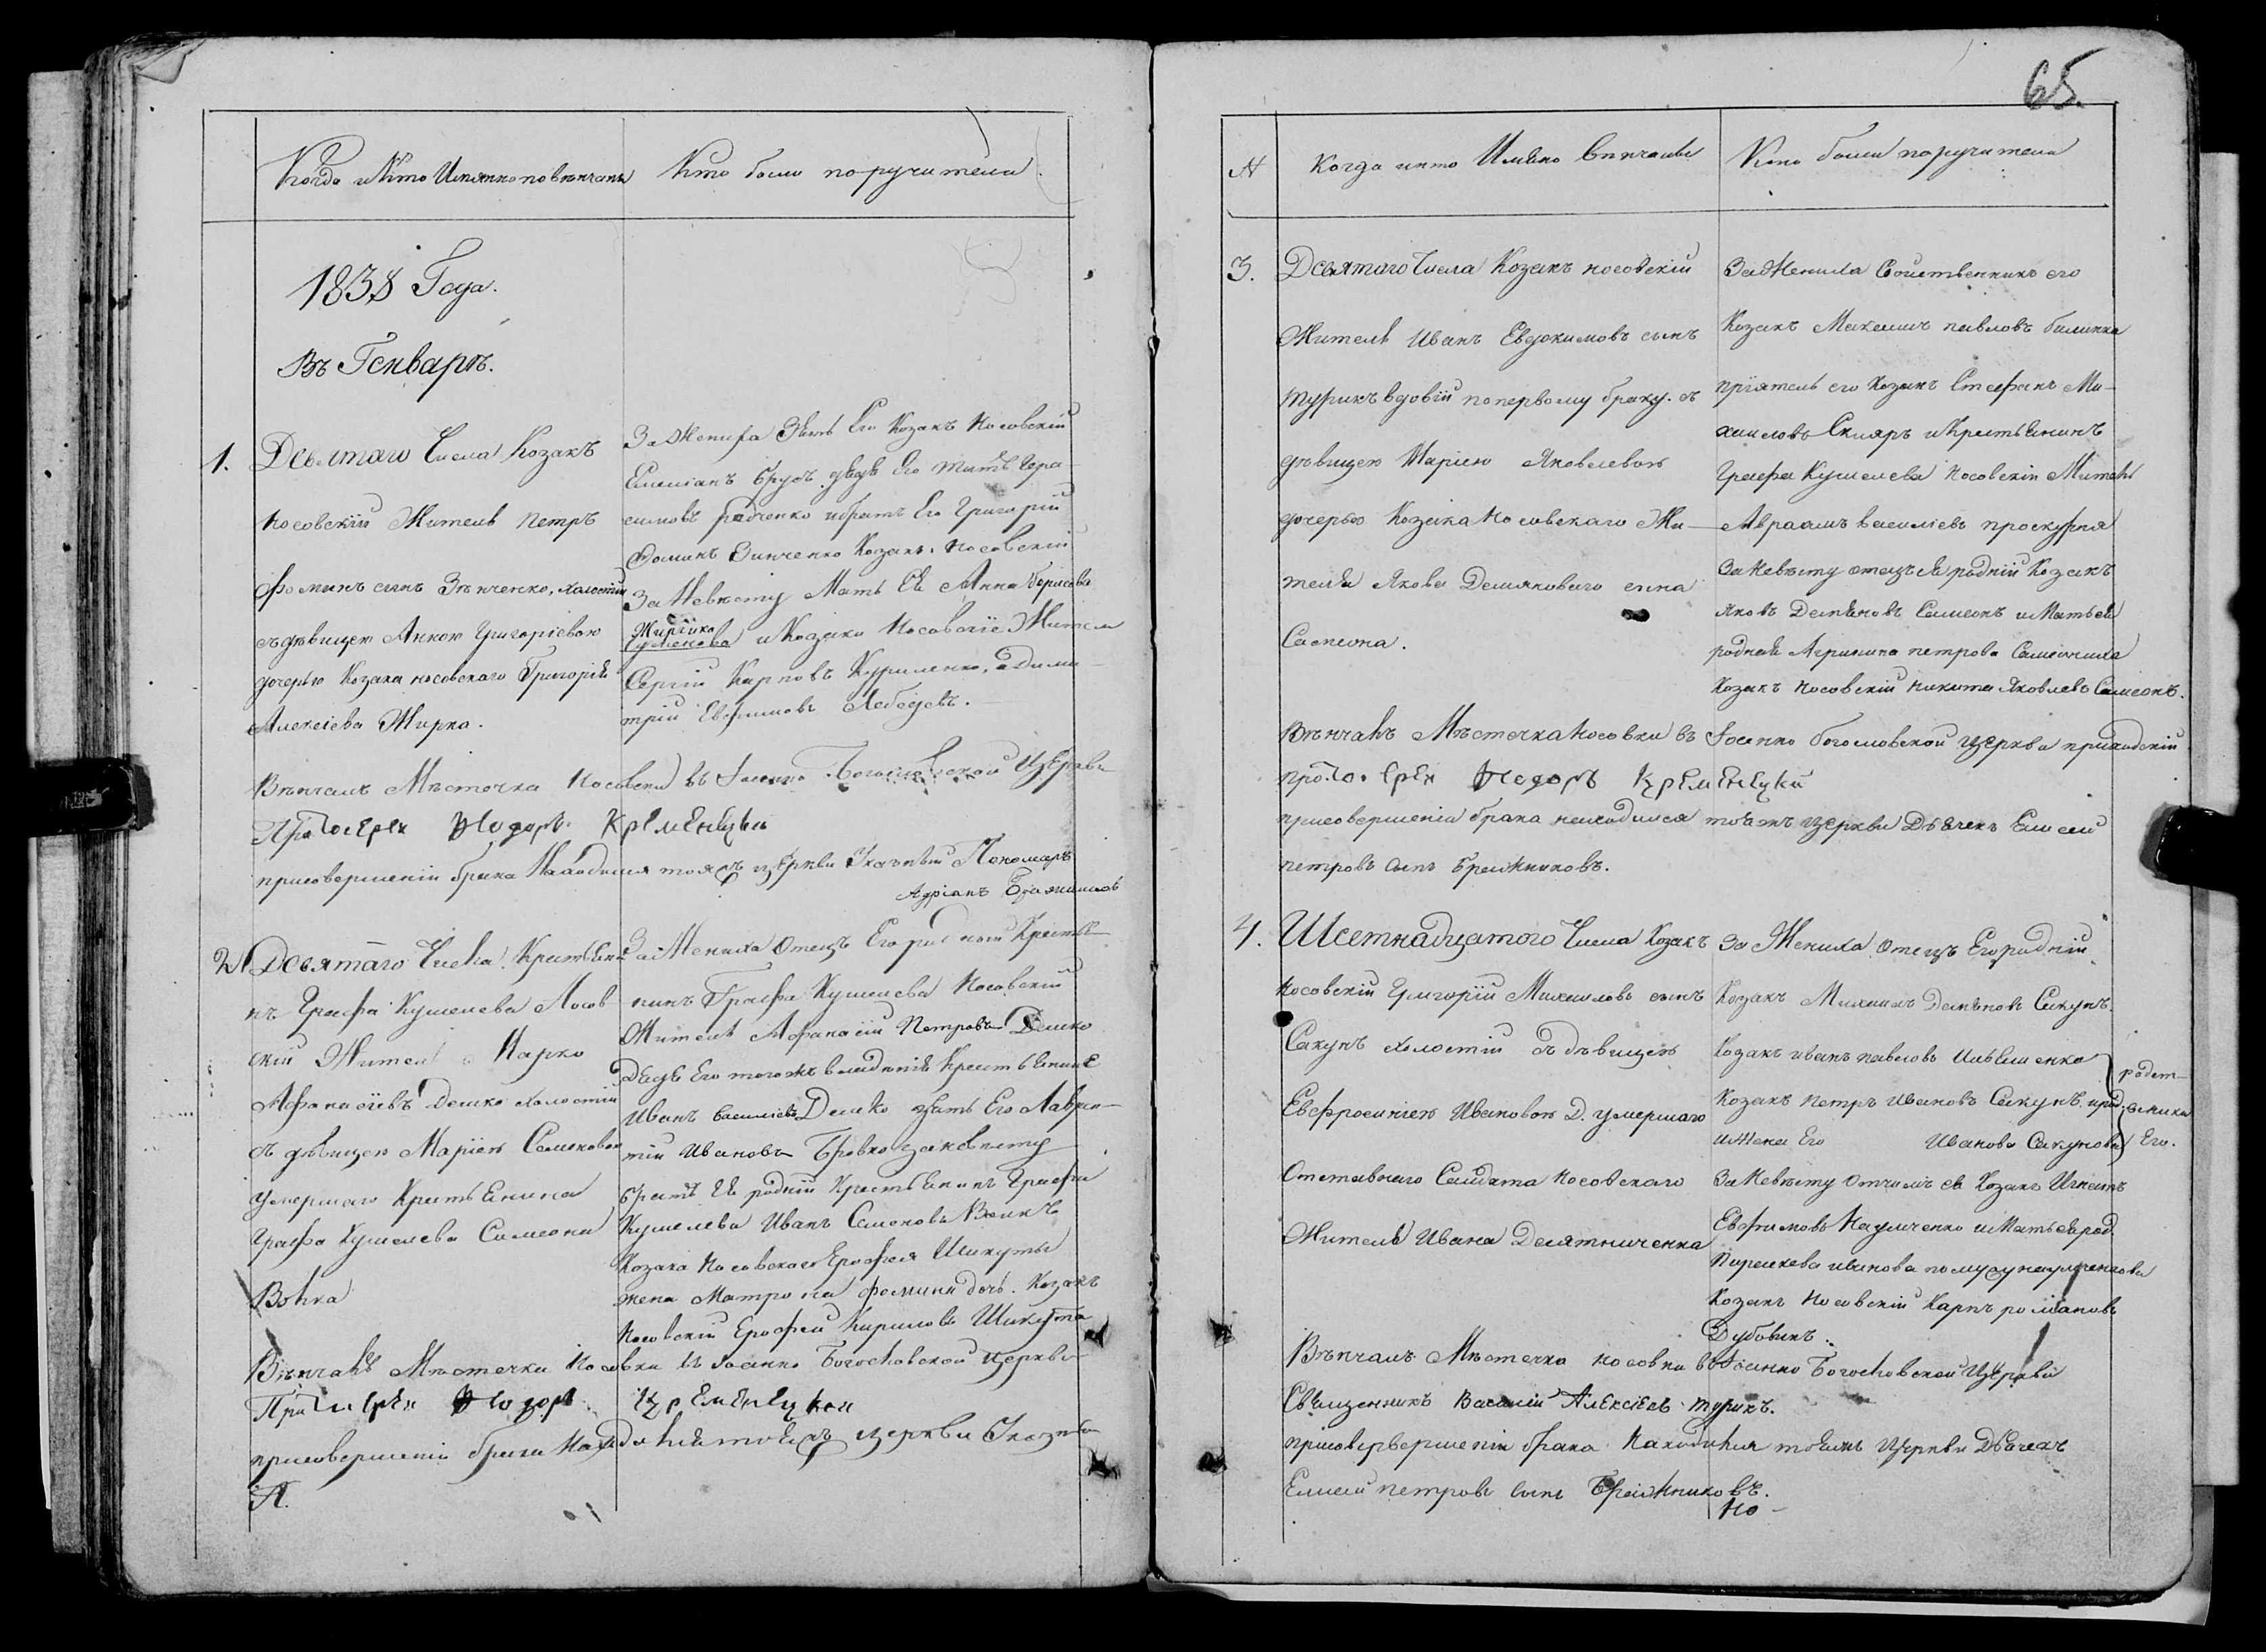 65.
Когда и Кто Имянно повѣнчаны
Кто были поручители
1838 Года.
Въ Генварѣ.
1. Девятаго Числа Козакъ
Носовскій Житель Петръ
Фоминъ сынъ Зѣнченко, холостій
съ дѣвицею Анною Григоріевою
дочерью Козака носовскаго Григорія
Алексіева Жирка.
За Жениха Зять Его Козакъ Носовскій
Емеліанъ дядя Его Титъ Гера-
симовъ ибратъ Его Григорій
Фоминъ Зинченко Козакъ Носовскій
За Невѣсту Мать Ея Анна Борисова
Жиркіха и Козаки Носовскіе Жители
Сергій Карповъ Куриленко, а Дими-
трій Евфимовъ Лебедевъ.
Вѣнчалъ Мѣстечка Носовки въ Іоанно Богословской Церкви
Протоіерей Феодоръ Кременецкій
присовершеніи брака Находился тояжъ церкви Пономарь
Адріанъ
2. Девятаго Числа Крестьяни-
нъ Графа Кушелева Носов
скій Житель Марко
Афанасіевъ Дешко холостій
съ дѣвицею Маріею Семеновою
умершаго Крестьянина
Графа Кушелева Симеона
Вовка
За Жениха отецъ Его родный Крестья-
нинъ Графа Кушелева Носовскій
Житель Афанасій Петровъ Дешко
Дядя Его тогожъ владѣнія Крестьянинъ
Иванъ Василіевъ Дешко зять Его Лаврен-
тій Ивановъ Бровко заневѣсту
братъ Ея родній Крестьянинъ Графа
Кушелева Иванъ Семеновъ Вовкъ
Козака Носовскаго Ерофея Шикуты
жена Матрона Фомина дочь. Козакъ
Носовскій Ерофей Кириловъ Шикута
Вѣнчалъ Мѣстечка Носовки въ Іоанно Богословской церкви
Протоіерей Феодоръ Кременецкій
присовершеніи брака Находился тояжъ церкви
П.
N
Когда икто Имѣно Вѣнчаны
Кто были поручители
3. Девятаго Числа Козакъ носовскій
Житель Иванъ Евдокимовъ сынъ
Турикъ вдовій поперьвому браку. съ
дѣвицею Маріею Яковлевою
дочерью Козака Носовскаго Жи-
теля Якова Демяноваго сына
Самсона.
За Жениха Свойственникъ его
Козакъ Максимъ павловъ билинка
пріятель его Козакъ Стефанъ Ми-
хаиловъ Скляръ и Крестьянинъ
Графа Кушелева Носовскій Житель
Авраамъ василіевъ проскурня
Заневѣсту отецъ Ея родній Козакъ
Яковъ Демяновъ Самсонъ и Мать ея
родная Агрипина петрова Самсониха
Козакъ Носовскій Никита Яковлевъ Самсонъ.
Вѣнчалъ Мѣстечка Носовки въ Іоанно богословской церкви приходскій
протоіерей Феодоръ Кременецкій
присовершеніи брака находился тояжъ церкви Дьячекъ Елисей
петровъ сынъ Бражниковъ.
4. Шестнадцатого Числа Козакъ
Носовскій Григорій Михаиловъ сынъ
Сакунъ холостій съ дѣвицею
Евфросиніею Ивановою Д. умершаго
Отставнаго Салдата Носовскаго
Жителя Ивана Десятниченка
За Жениха Отецъ Его родній
Козакъ Михаилъ Демяновъ Сакунъ.
Козакъ иванъ павловъ
Козакъ Петръ Ивановъ Сакунъ
и Жена Его Иванова Сакунова
родст-
веники
Его.
За Невѣсту Отчимъ ея Козакъ Игнатъ
Евфимовъ Наумченко и Мать ея род.
Параскева иванова помужу наумченкова
Козакъ Носовскій Карпъ романовъ
Дубовикъ.
Вѣнчалъ Мѣстечка носовки въ Іоанно Богословской Церкви
Священникъ Василій Алексіевъ турикъ.
присоверьвершеніи брака Находился тояжъ Церкви Дьячекъ
Елисей петровъ сынъ Бражниковъ.
Но-